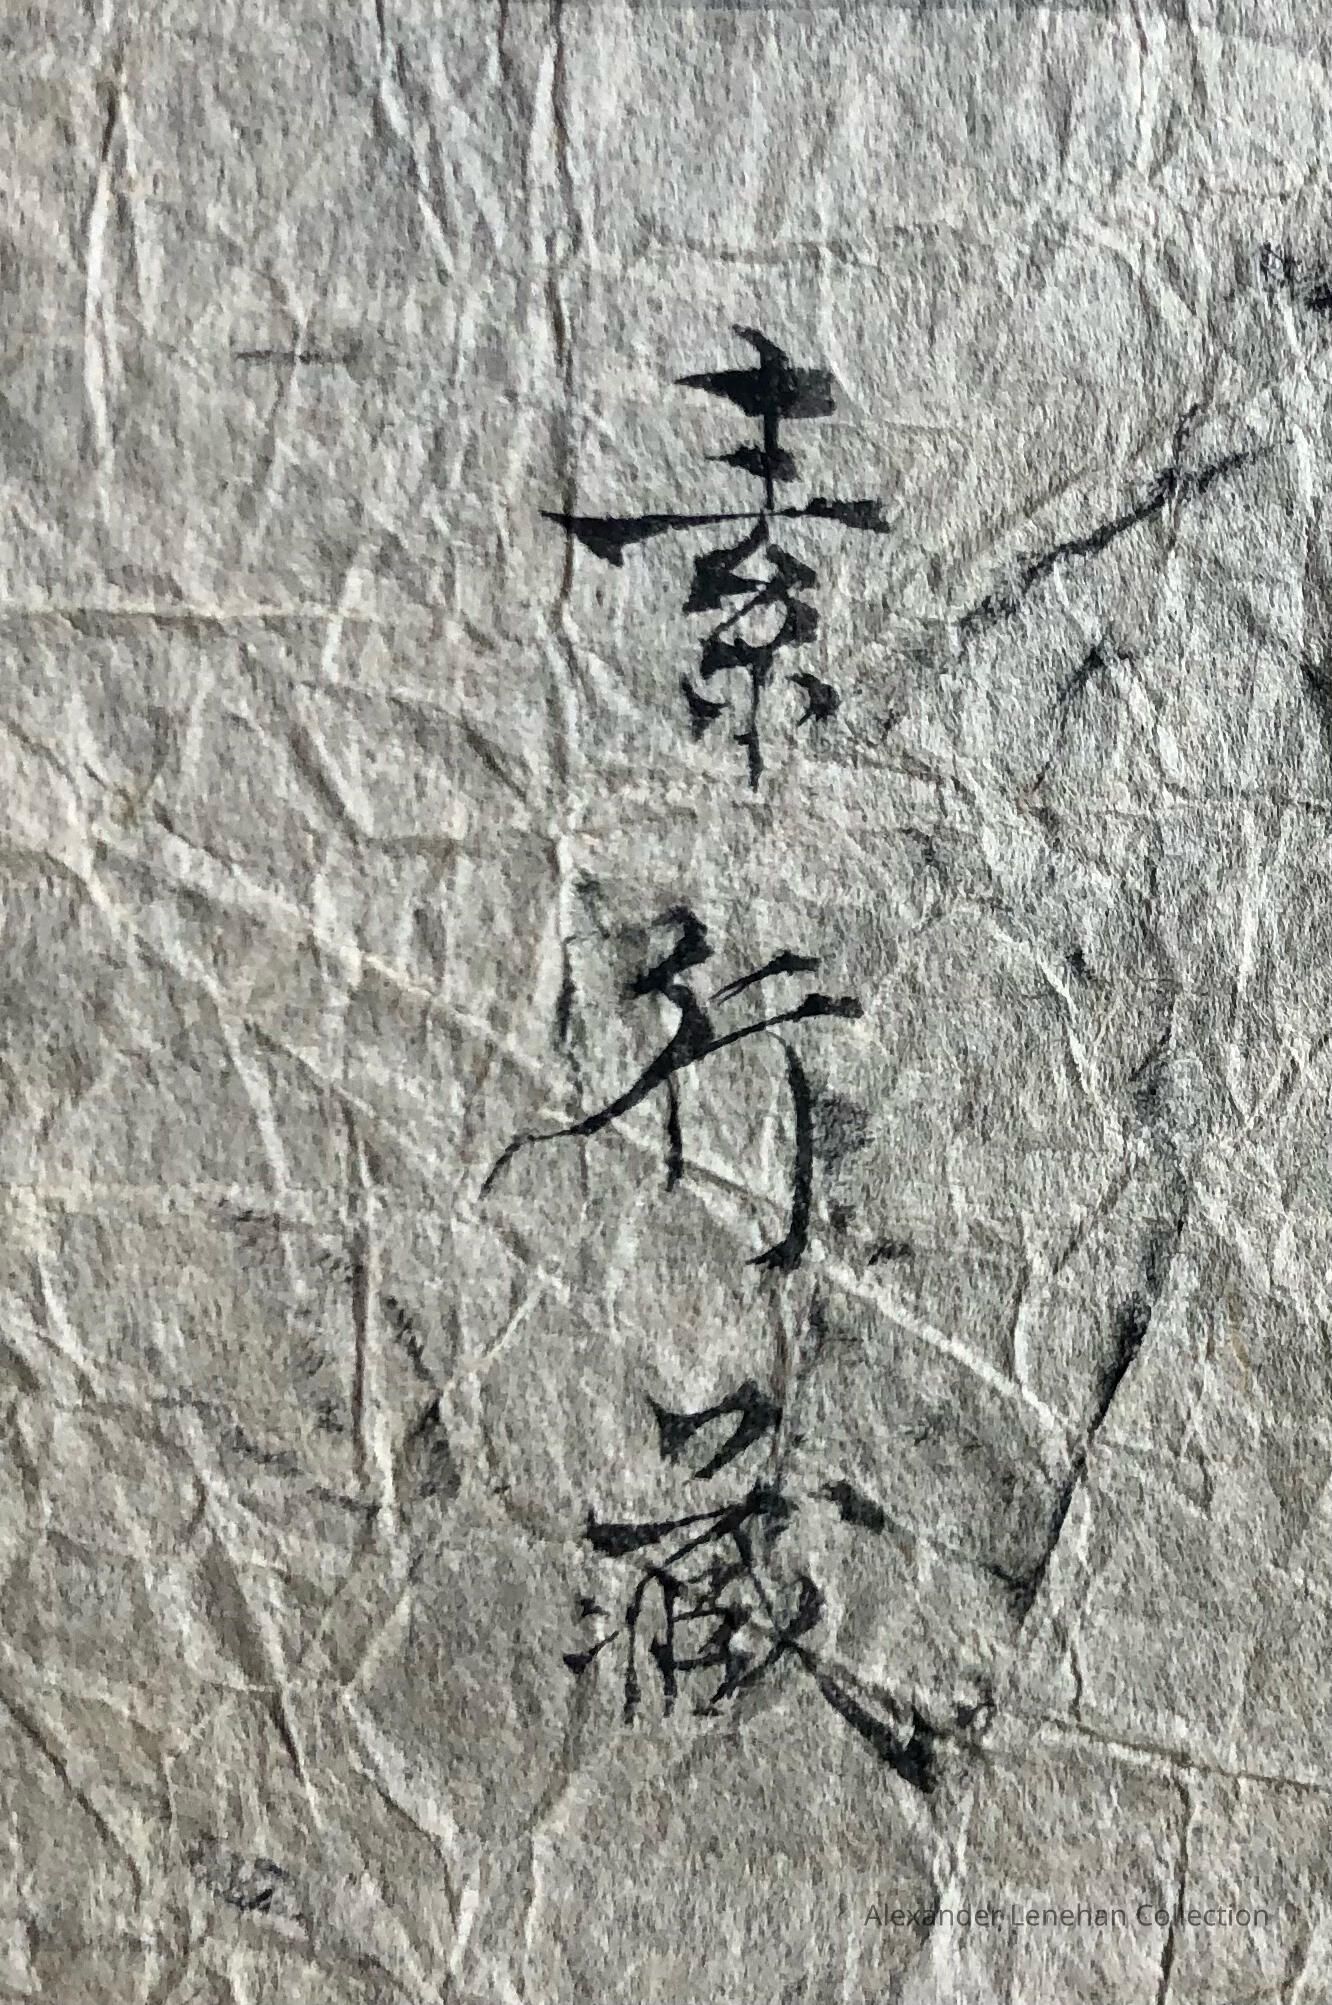 素行藏
Alexander Lenehan Collection